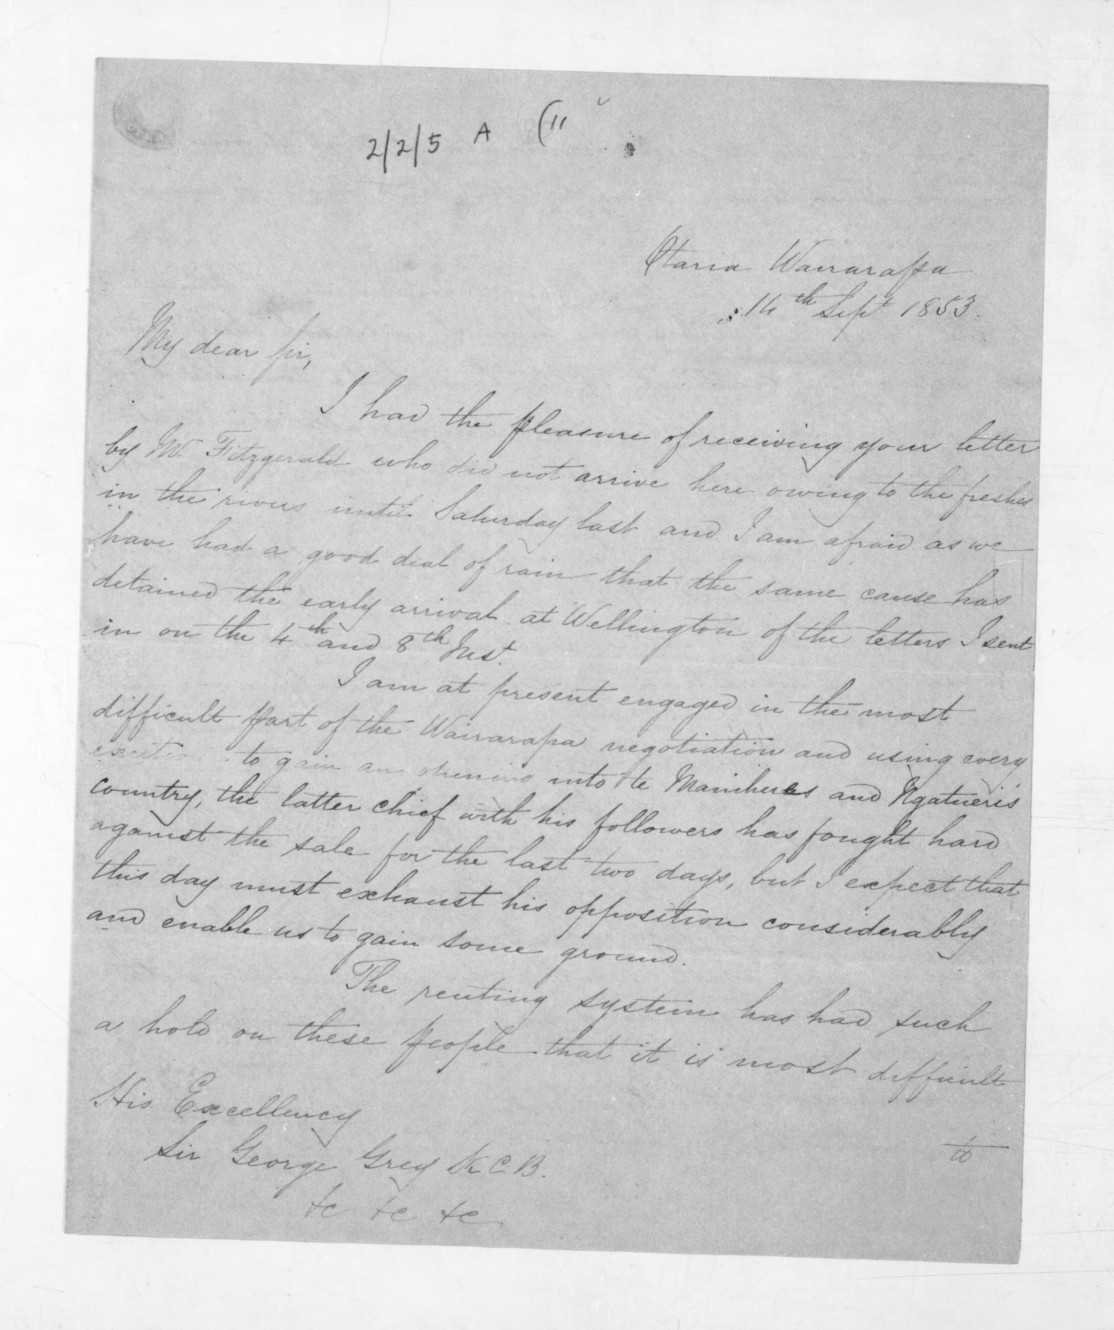 2/2/5 A (11
Otaria Wairarapa
14th Sept 1853.
My dear Sir,
I had the pleasure of receiving your letter
by Mr Fitzgerald who did not arrive here owing to the freshes
in the rivers until Saturday last and I am afraid as we
have had a good deal of rain that the same cause has
detained the early arrival at Wellington of the letters I sent
in on the 4th and 8th Inst.
I am at present engaged in the most
difficult part of the Wairarapa negotiation and using every
exertion to gain an opening into te Maniheras and Ngatueris
country, the latter chief with his followers has fought hard
against the sale for the last two days, but I expect that
this day must exhaust his opposition considerably
and enable us to gain some ground.
The renting system has had such
a hold on these people that it is most difficult
His Excellency
Sir George Grey K C B.
&c &c &c
to